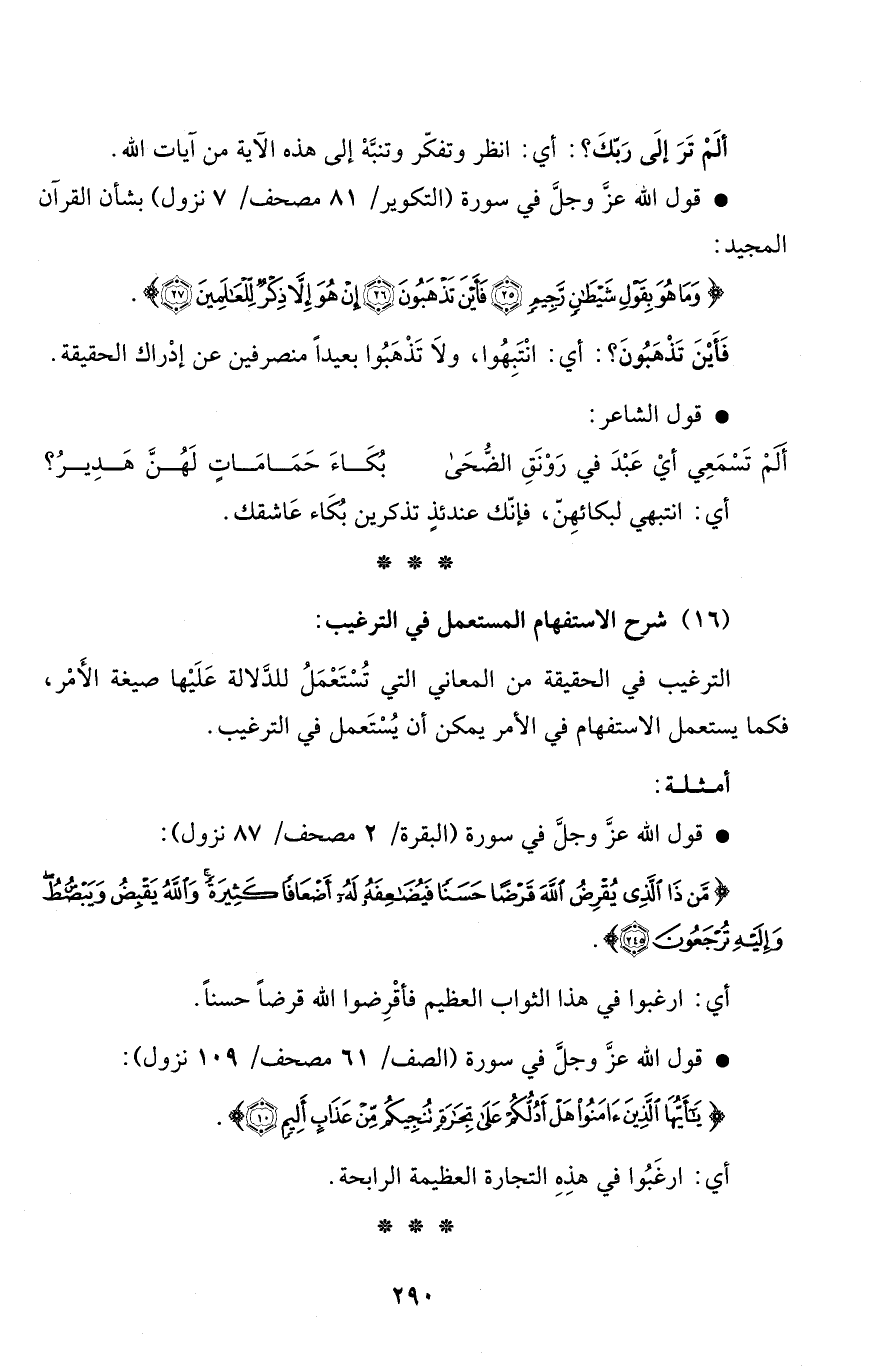 ألَمْ تَرَ إلَى رَبّكَ؟: أي: انظر وتفكّر وتنبَّهْ إلى هذه الآية من آيات الله.
● قول الله عزَّ وجلَّ في سورة (التكوير/ ٨١ مصحف/ ٧ نزول) بشأن القرآن
المجيد:
﴿وَمَا هُوَ بِقَوْلِ شَيْطَانٍ رَّجِيمٍ ۝٢٥ فَأَيْنَ تَذْهَبُونَ ۝٢٦ إِنْ هُوَ إِلَّا ذِكْرٌ لِّلْعَالَمِينَ ۝٢٧﴾.
فَأَيْنَ تَذْهَبُونَ؟: أي: انْتَبِهُوا، ولاَ تَذْهَبُوا بعيداً منصرفين عن إدْراك الحقيقة.
● قول الشاعر:
أَلَمْ تَسْمَعِي أيْ عَبْدَ في رَوْنَقِ الضُّحَىٰ بُكَـاءَ حَمَـامَـاتٍ لَهُـنَّ هَـدِيـرُ؟
أي: انتبهي لبكائهِنّ، فإنّك عندئذٍ تذكرين بُكَاء عَاشقك.
* * *
(١٦) شرح الاستفهام المستعمل في الترغيب:
الترغيب في الحقيقة من المعاني التي تُسْتَعْمَلُ للدَّلالة عَلَيْها صيغة الأَمْر،
فكما يستعمل الاستفهام في الأمر يمكن أن يُسْتَعمل في الترغيب.
أمـثـلـة:
● قول الله عزَّ وجلَّ في سورة (البقرة/ ٢ مصحف/ ٨٧ نزول):
﴿مَّن ذَا ٱلَّذِى يُقْرِضُ ٱللَّهَ قَرْضًا حَسَنًا فَيُضَٰعِفَهُۥ لَهُۥٓ أَضْعَافًا كَثِيرَةً ۚ وَٱللَّهُ يَقْبِضُ وَيَبْصُۜطُ
وَإِلَيْهِ تُرْجَعُونَ ۝٢٤٥﴾.
أي: ارغبوا في هذا الثواب العظيم فأقْرِضوا الله قرضاً حسناً.
● قول الله عزَّ وجلَّ في سورة (الصف/ ٦١ مصحف/ ١٠٩ نزول):
﴿يَٰٓأَيُّهَا ٱلَّذِينَ ءَامَنُوا۟ هَلْ أَدُلُّكُمْ عَلَىٰ تِجَٰرَةٍ تُنجِيكُم مِّنْ عَذَابٍ أَلِيمٍ ۝١٠﴾.
أي: ارغَبُوا في هذِهِ التجارة العظيمة الرابحة.
* * *
٢٩٠